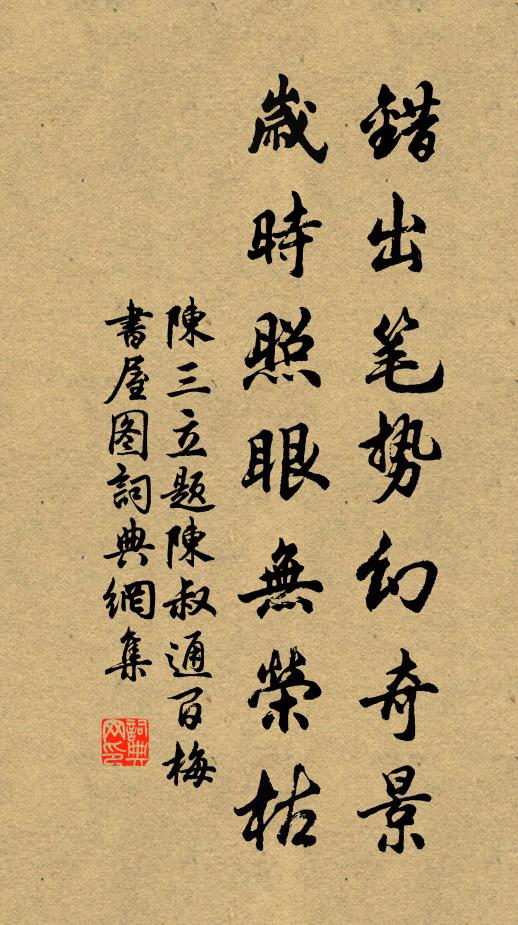 錯出笔势幻奇景
歲時照眼無榮枯
陳三立題陳叔通百梅
書屋图詞典網集
詞典
网印